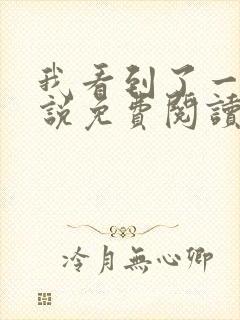 我看到了一
說免費閱讀
冷月無心卿